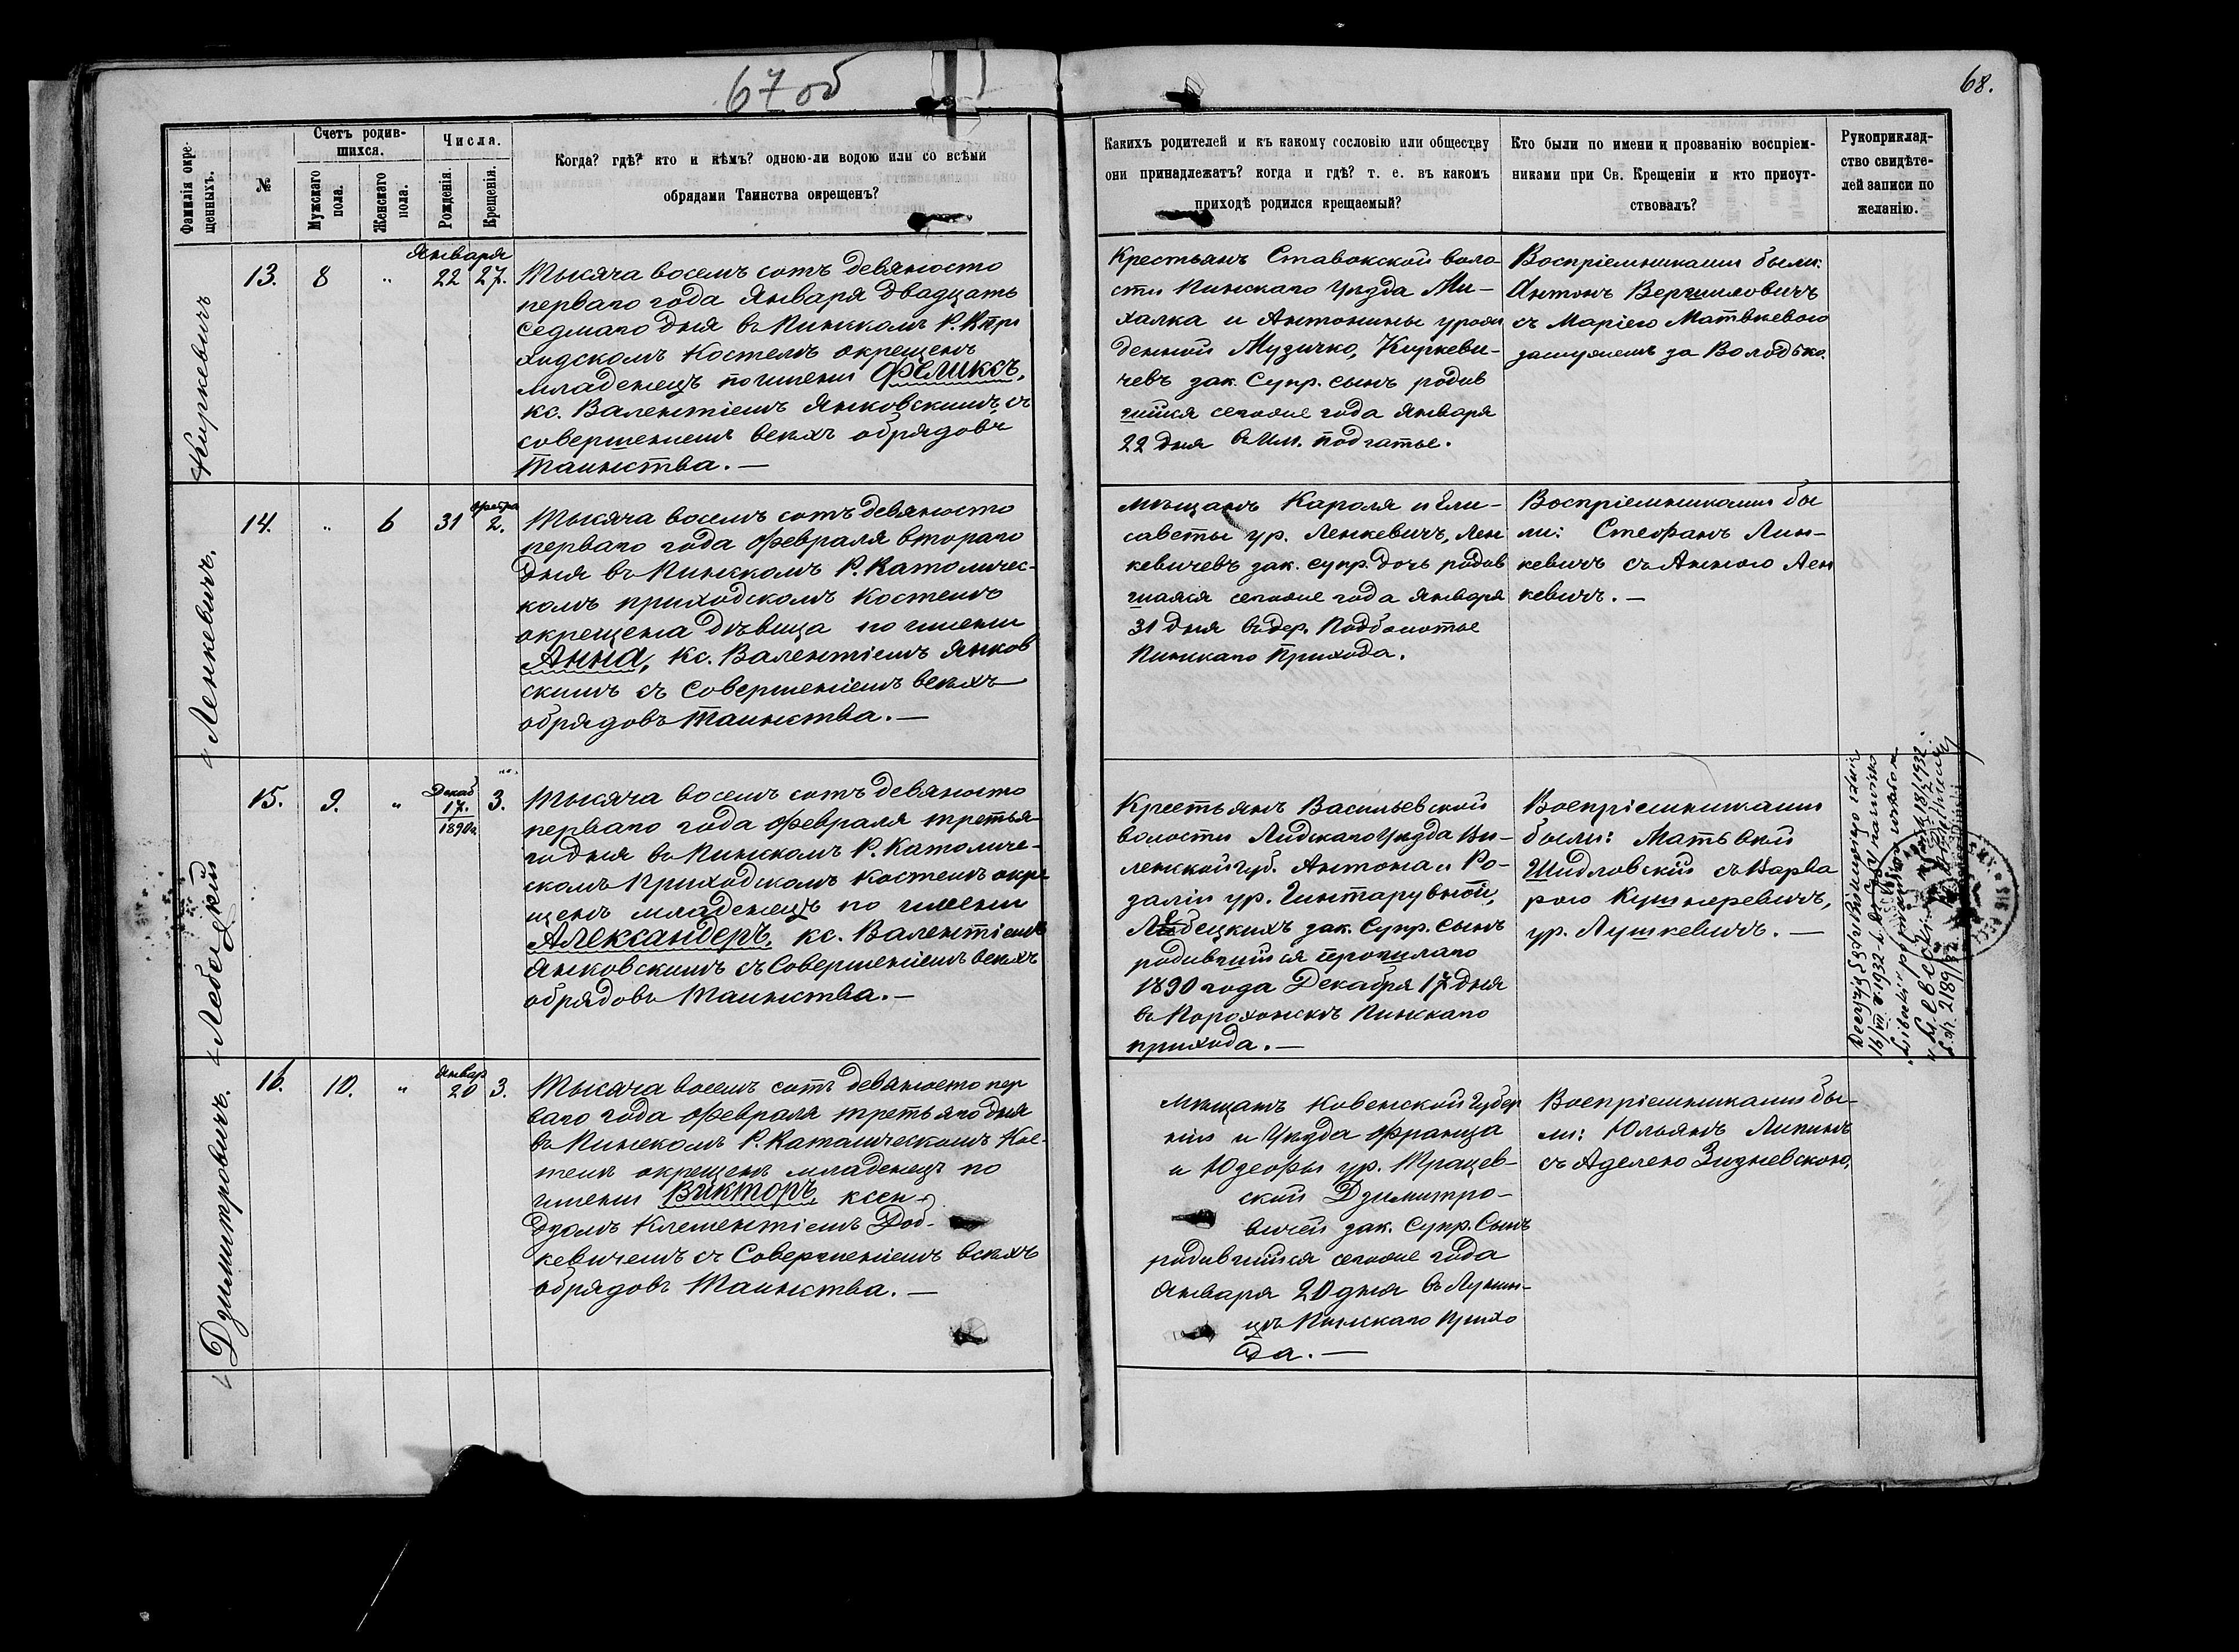 67 об
68.
Фамилія окре-
щенныхъ.
№
Счетъ родив-
шихся.
Мужскаго
пола.
Женскаго
пола.
Числа.
Рожденія.
Крещенія.
Когда? гдѣ? кто и кѣмъ? одною-ли водою или со всѣми
обрядами Таинства окрещенъ?
Какихъ родителей и къ какому сословію или обществу
они принадлежатъ? когда и гдѣ? т. е. въ какомъ
приходѣ родился крещаемый?
Кто были по имени и прозванію воспріем-
никами при Св. Крещеніи и кто присут-
ствовалъ?
Рукоприклад-
ство свидѣте-
лей записи по
желанію.
Киркевичъ
13. 8 „
Января
22 27.
Тысяча восемь сотъ девяносто
перваго года Января двадцать
седмаго дня въ Пинскомъ Р. К при
ходскомъ Костелѣ окрещенъ
младенецъ по имени Феликсъ,
кс. Валентіемъ Янковскимъ, съ
совершеніемъ всѣхъ обрядовъ
таинства. —
Крестьянъ Ставокской воло-
сти Пинскаго Уѣзда Ми-
халка и Антонины урож
денной Музычко, Киркеви-
чевъ зак. Супр. сынъ родив
шійся сегоже года Января
22 дня въ Им.
Воспріемниками были:
Антонъ Вергилловичъ
съ Маріею Матвѣевою
замужемъ за Володько.
Ленкевичъ.
14. „ 6 31
Февра
2.
Тысяча восемь сотъ девяносто
перваго года Февраля втораго
дня въ Пинскомъ Р. Католичес-
комъ приходскомъ костелѣ
окрещена дѣвица по имени
Анна, кс. Валентіемъ Янков
скимъ съ Совершеніемъ всѣхъ
обрядовъ таинства. —
Мѣщанъ Кароля и Ели-
саветы ур. Ленкевичъ, Лен
кевичевъ зак. супр. дочь родив
шаяся сегоже года Января
31 дня въ дер. Подболотье
Пинскаго Прихода.
Воспріемниками бы
ли: Стефанъ Лин-
кевичъ съ Анною Лен
кевичъ. —
Лебецкій
15. 9. „
Декаб
17.
1890г.
3.
Тысяча восемь сотъ девяносто
перваго года Февраля третья-
го дня въ Пинскомъ Р. Католиче-
скомъ Приходскомъ Костелѣ окре-
щенъ младенецъ по имени
Александеръ, кс. Валентіемъ
Янковскимъ съ Совершеніемъ всѣхъ
обрядовъ Таинства. —
Крестьянъ Васильевской
волости Лидскаго Уѣзда Ви-
ленской губ. Антона и Ро-
заліи ур. Гинтарувной,
Лебецкихъ зак. Супр. Сынъ
родившійся прошлаго
1890 года Декабря 17 дня
въ Порохонскѣ Пинскаго
прихода. —
Воспріемниками
были: Матьвѣй
Шидловскій съ Варва
рою Кушнеревичъ,
ур. Лушкевичъ. —
16/VII r. 1932
L. dz. 2189/32
Дзимитровичъ.
16. 10. „
Январ
20
3.
Тысяча восемь сотъ девяносто пер
ваго года Февраля третьяго дня
въ Пинскомъ Р. Католическомъ Кос-
телѣ окрещенъ младенецъ по
имени Викторъ, ксен-
дзомъ Клементіемъ Доб-
кевичемъ съ Совершеніемъ всѣхъ
обрядовъ Таинства. —
Мѣщанъ Ковенской Губер
ніи и Уѣзда Франца
и Юзефы ур. Трацев-
ской Дзимитро-
вичей зак. Супр. Сынъ
родившійся сегоже года
Января 20 дня въ Лунин-
цѣ Пинскаго Прихо
да. —
Воспріемниками бы-
ли: Юльянъ Липинъ
съ Аделею Зизневскою,